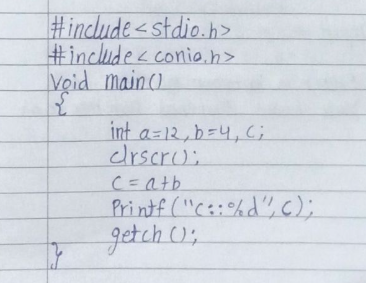 #include<stdio.h>
#include<conio.h>
Void main()
{
int a=12,b=4, C;
clrscr();
C = a+b
Printf("C::%d", C);
getch ();
}